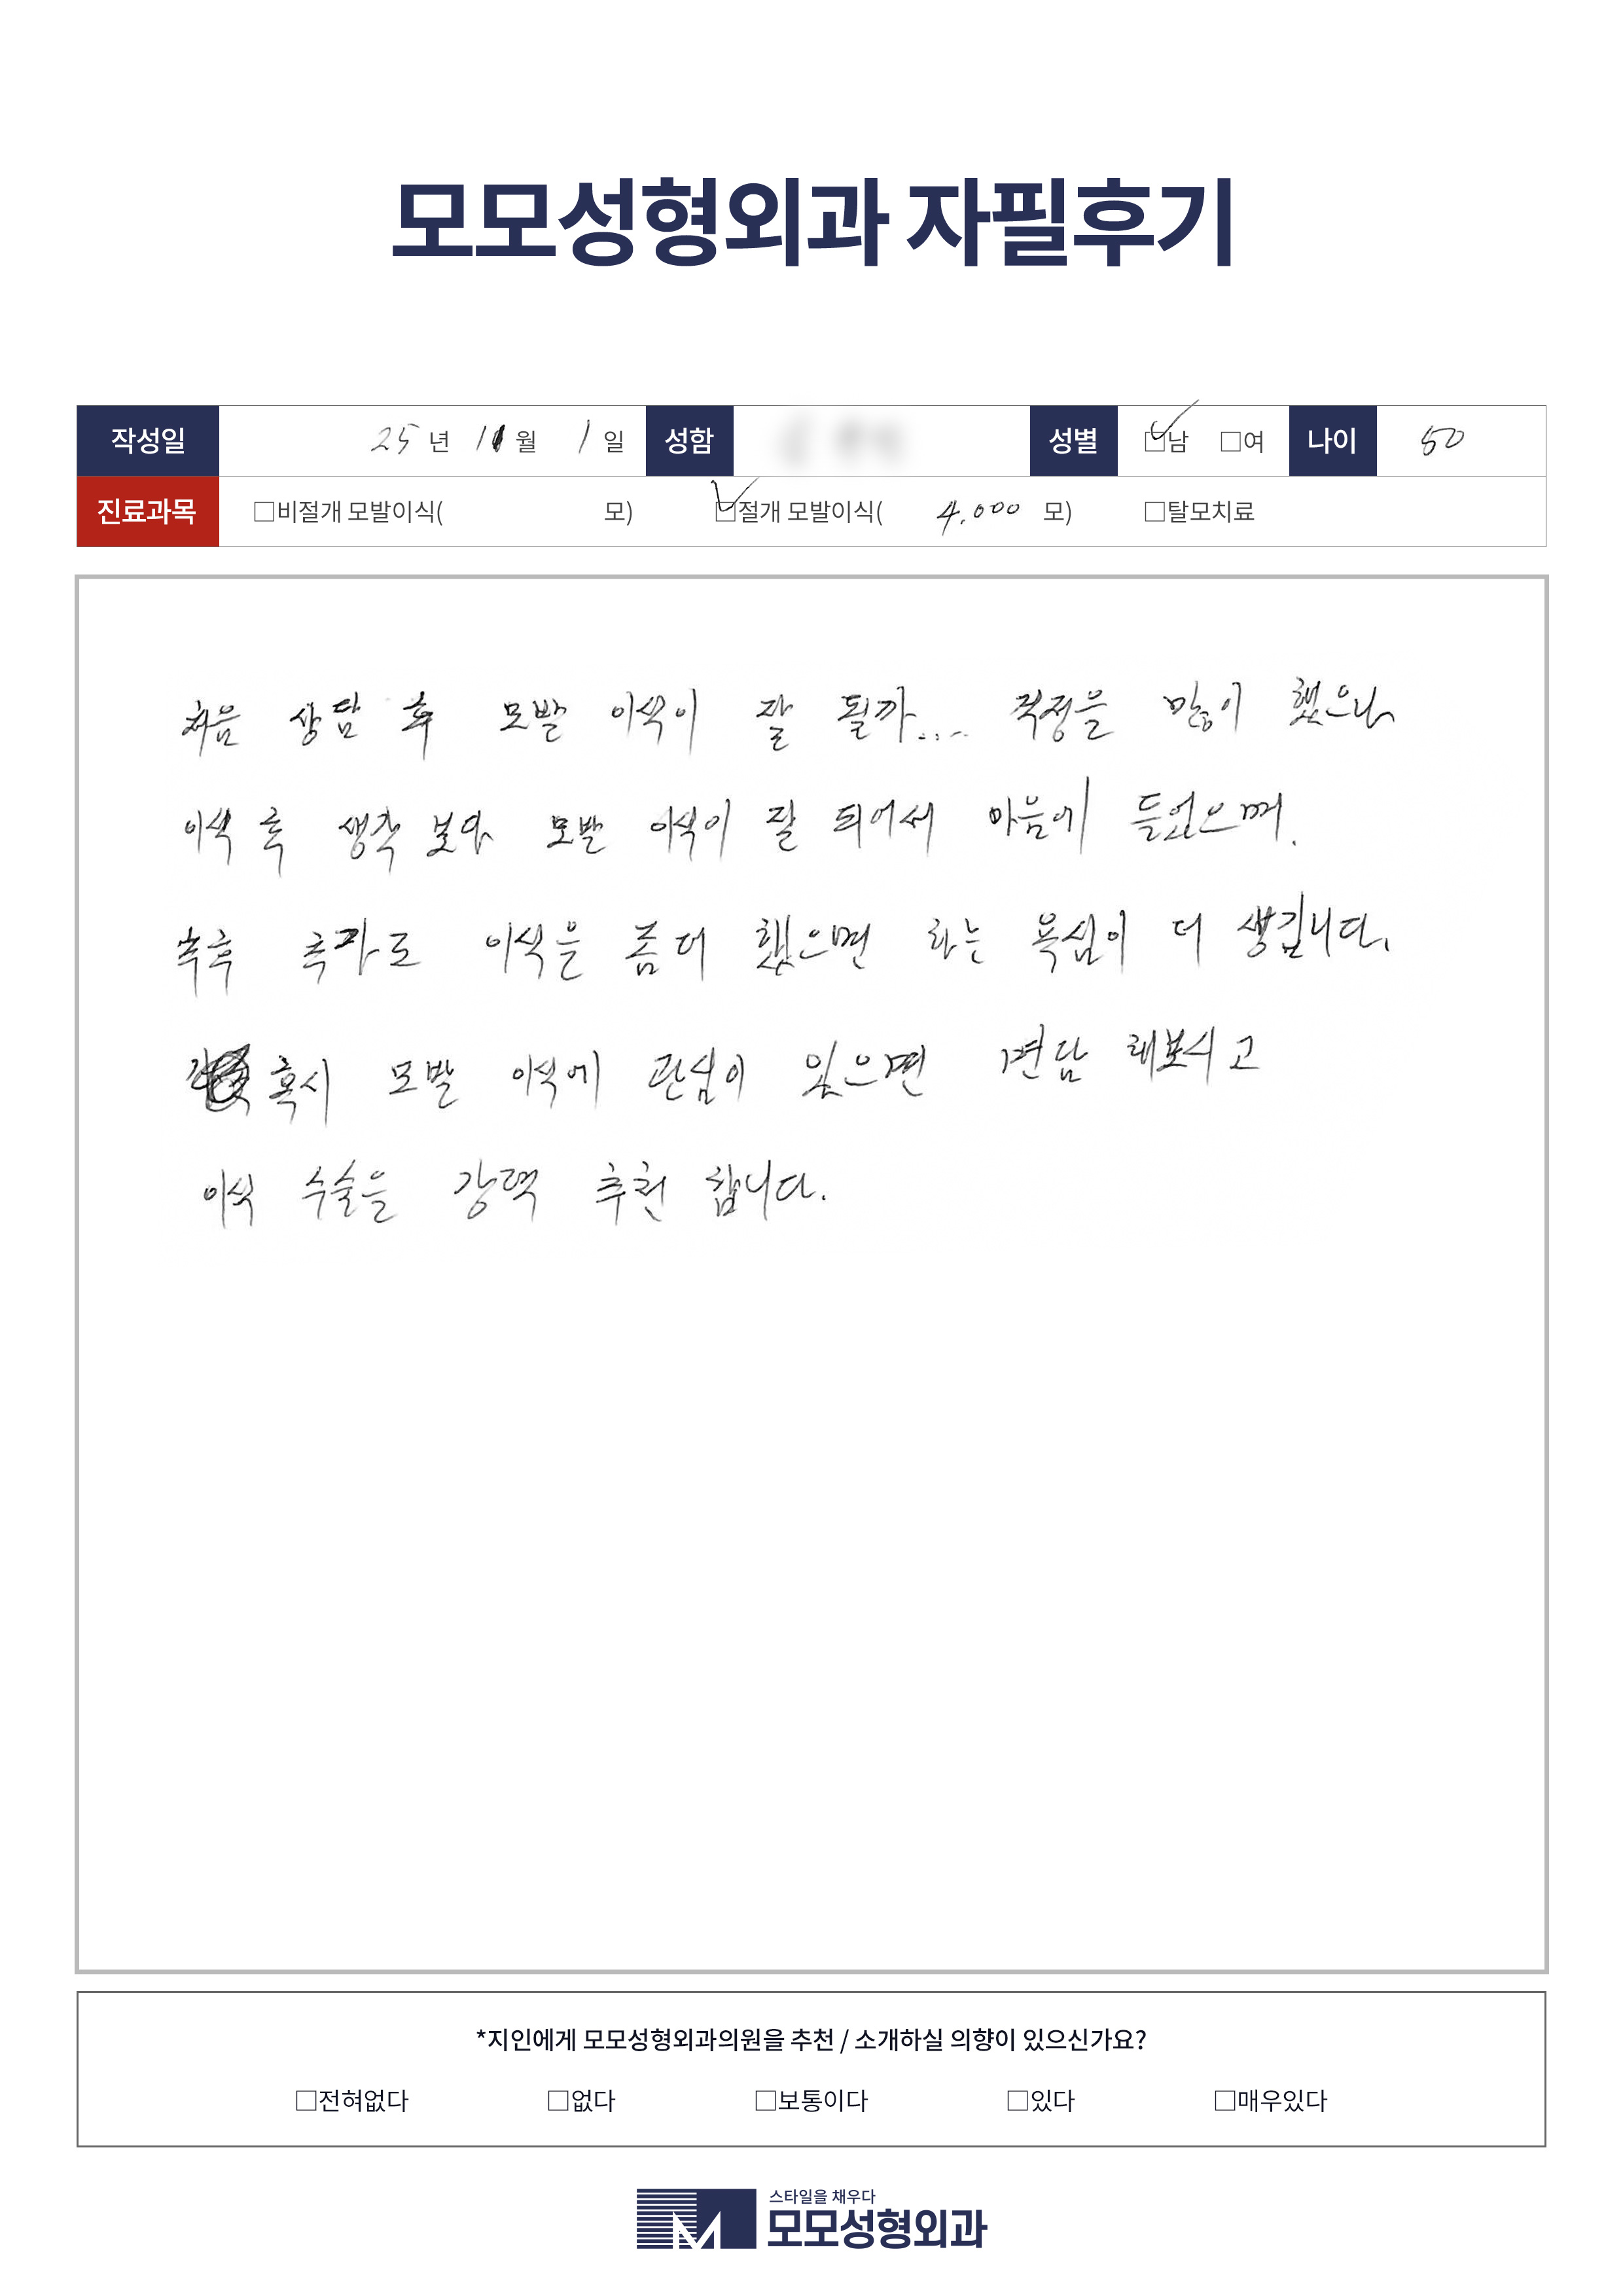 모모성형외과 자필후기
작성일 25 년 11 월 1 일 성함 성별 ☑남 □여 나이 50
진료과목 □비절개 모발이식( 모) ☑절개 모발이식( 4,000 모) □탈모치료
처음 상담 후 모발 이식이 잘 될까..... 걱정을 많이 했으나
이식 후 생각 보다 모발 이식이 잘 되어서 마음에 들었으며.
추후 추가로 이식을 좀더 했으면 하는 욕심이 더 생깁니다.
혹시 모발 이식에 관심이 있으면 면담 해보시고
이식 수술을 강력 추천 합니다.
*지인에게 모모성형외과의원을 추천 / 소개하실 의향이 있으신가요?
□전혀없다 □없다 □보통이다 □있다 □매우있다
스타일을 채우다
모모성형외과